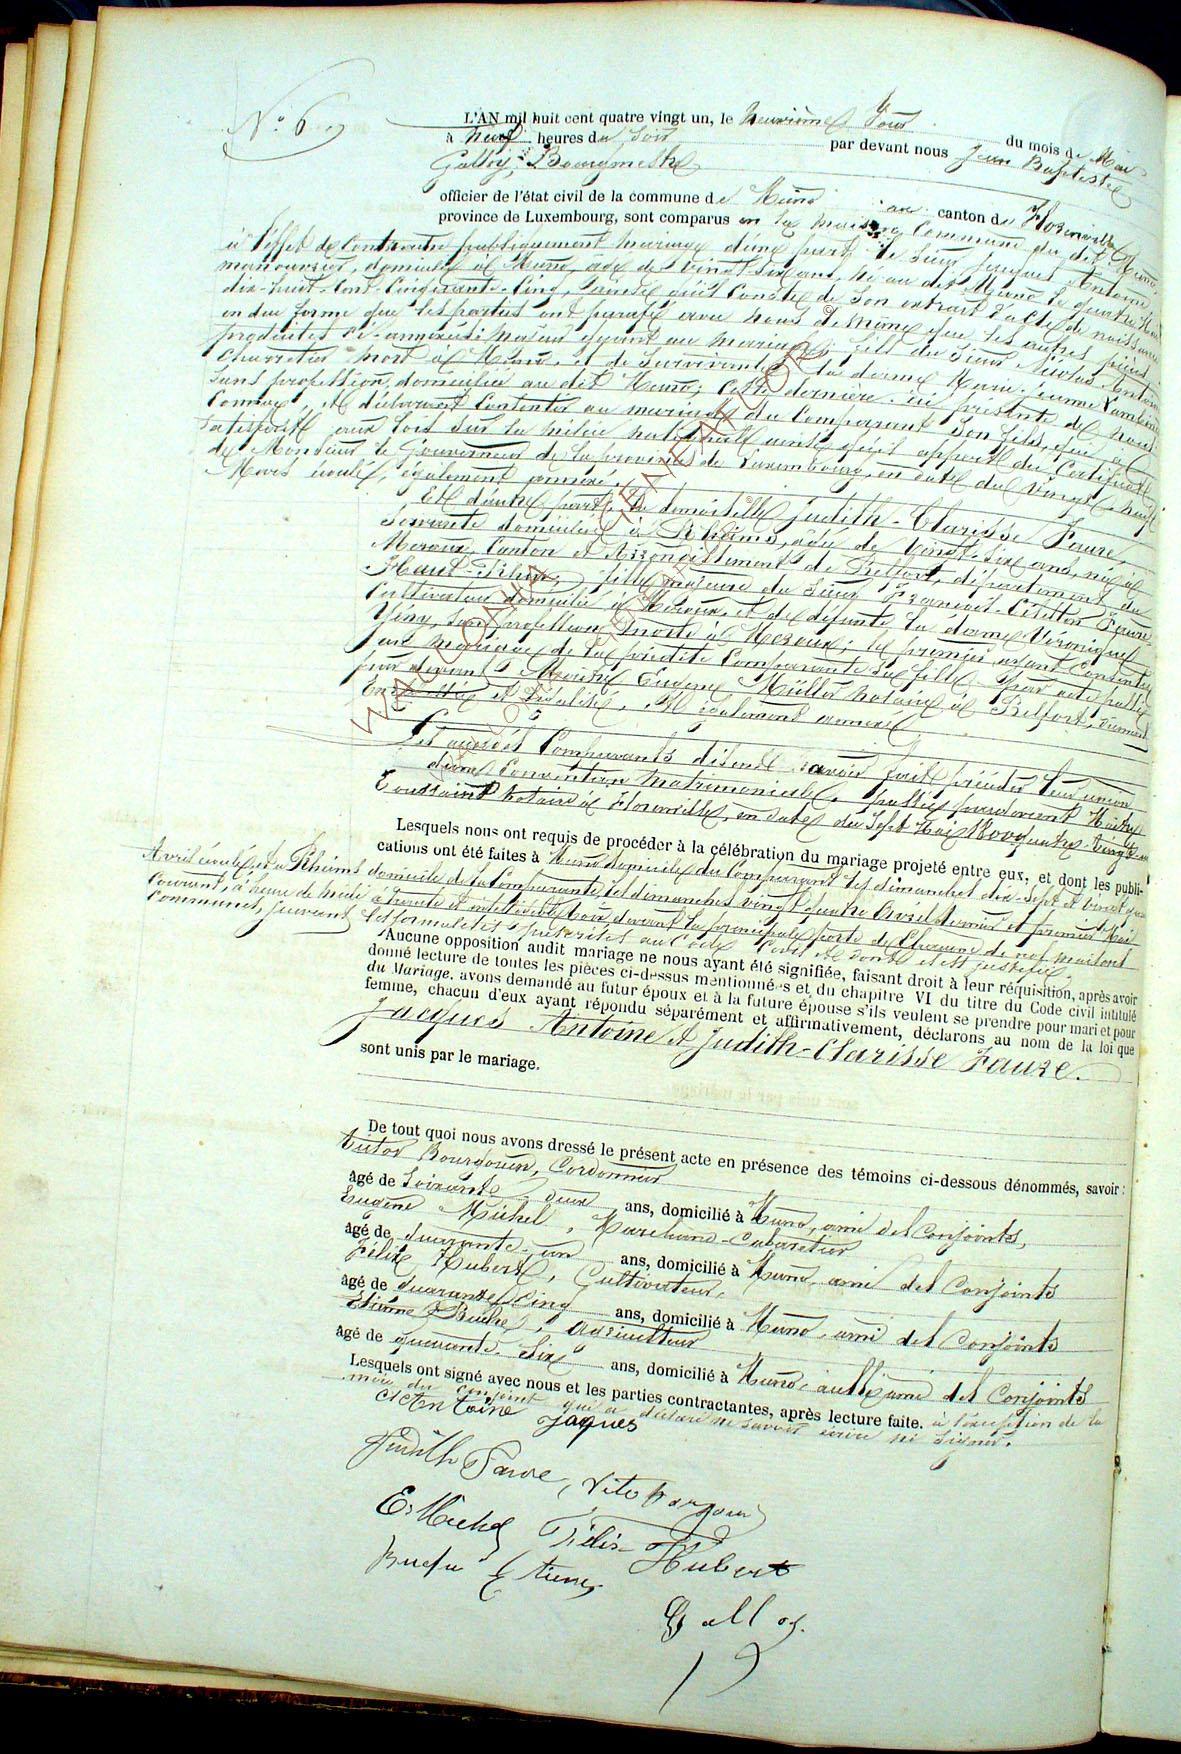 N° 6
L'AN mil huit cent quatre vingt un, le neuvième Jour du mois de Mai
à neuf heures du soir par devant nous Jean Baptiste
Galloy, Bourgmestre
officier de l'état civil de la commune de Muno au canton de Florenville
province de Luxembourg, sont comparus en la maison Commune du dit Muno
à l'effet de contracter publiquement mariage d'une part le Sieur Jacques Antoine
manouvrier, domicilié à Muno, âgé de vingt-six ans, né au dit Muno le quatre Mai
dix-huit-Cent-Cinquante-Cinq, ainsi qu'il Conste de son extrait d'acte de naissance
en due forme que les parties ont parafé avec nous de même que les autres pièces
produites ci-annexées; majeur quant au mariage; fils du Sieur Nicolas Antoine
Charretier mort à Muno et de Survivante la dame Marie Jeanne Lambert
Sans profession, domiciliée au dit Muno; cette dernière ici présente de nous
Connue, et déclarant Consentir au mariage du Comparant Son fils, qui a
satisfait aux lois sur la milice nationale ainsi qu'il appert du Certificat
de Monsieur le Gouverneur de la province de Luxembourg, en date du vingt-neuf
Mars écoulé, également annexé.
Et d'autre part, la demoiselle Judith-Clarisse Faure,
Servante domiciliée à Rheims, âgée de vingt-six ans, née à
Meroux, Canton et Arrondissement de Belfort, département du
Haut-Rhin, fille majeure du Sieur François-Célestin Faure
Cultivateur domicilié à Meroux, et de défunte la dame Véronique
sans profession, morte à Meroux; le premier ayant Consenti
au mariage de la prédite Comparante sa fille par acte passé
par devant Maître Eugène Müller notaire à Belfort, dûment
Enregistré et Légalisé, et également annexé
Les susdits Comparants disent avoir fait précéder leur union
d'une Convention matrimoniale, passée pardevant Maître
Toussaint Notaire à Florenville, en date du Sept Mai
Lesquels nous ont requis de procéder à la célébration du mariage projeté entre eux, et dont les publi-
cations ont été faites à Muno domicile du Comparant les dimanches dix-sept et vingt quatre
Avril écoulé, et à Rheims domicile de la Comparante, les dimanches vingt quatre Avril dernier et premier Mai
Courant, à l'heure de midi à haute et intelligible voix devant la principale porte de Chacune de nos maisons
Communes, suivant les formalités prescrites au Code Civil dont il est justifié.
Aucune opposition audit mariage ne nous ayant été signifiée, faisant droit à leur réquisition, après avoir
donné lecture de toutes les pièces ci-dessus mentionnées et du chapitre VI du titre du Code civil intitulé
du Mariage, avons demandé au futur époux et à la future épouse s'ils veulent se prendre pour mari et pour
femme, chacun d'eux ayant répondu séparément et affirmativement, déclarons au nom de la loi que
Jacques Antoine & Judith-Clarisse Faure.
sont unis par le mariage.
De tout quoi nous avons dressé le présent acte en présence des témoins ci-dessous dénommés, savoir :
Victor Bourgouin, Cordonnier
âgé de Soixante-deux ans, domicilié à Muno, ami des Conjoints,
Eugène Michel, Marchand-Cabaretier
âgé de quarante-un ans, domicilié à Muno, ami des Conjoints
Félix Hubert, Cultivateur,
âgé de quarante-cinq ans, domicilié à Muno, ami des Conjoints
Etienne Buche, Agriculteur
âgé de quarante-six ans, domicilié à Muno, aussi ami des Conjoints
Lesquels ont signé avec nous et les parties contractantes, après lecture faite. à l'exception de la
mère du conjoint qui a déclaré ne savoir écrire ni signer.
Antoine Jaques
Judith Faure,
E. Michel Félix Hubert
Etienne
Galloy